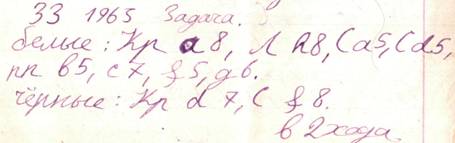 33 1965 Задача.
белые: Кр а8, Л h8, С а5, С d5,
пп b5, с7, f5, g6.
чёрные: Кр d7, С f8.
в 2 хода